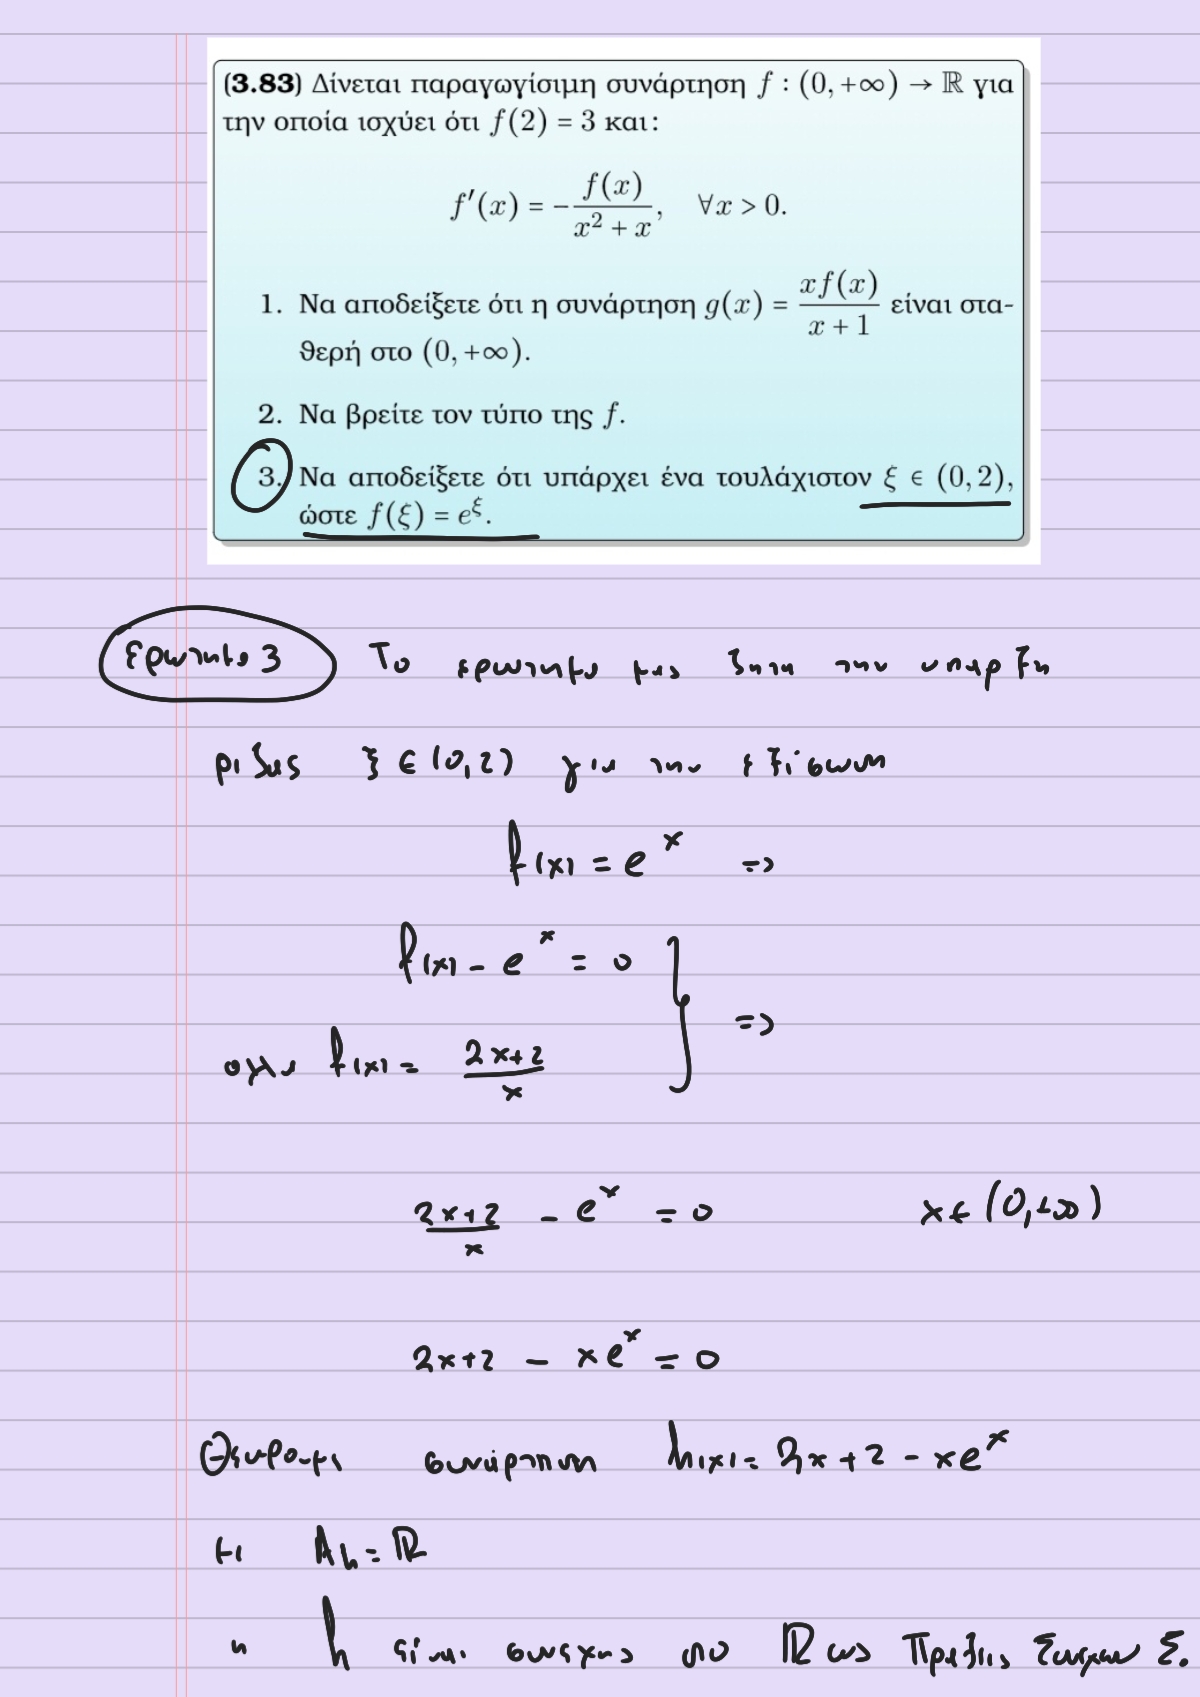 (3.83) Δίνεται παραγωγίσιμη συνάρτηση f : (0, +∞) → ℝ για
την οποία ισχύει ότι f(2) = 3 και:
f′(x) = −f(x)/(x² + x), ∀x > 0.
1. Να αποδείξετε ότι η συνάρτηση g(x) = xf(x)/(x + 1) είναι στα-
θερή στο (0, +∞).
2. Να βρείτε τον τύπο της f.
3. Να αποδείξετε ότι υπάρχει ένα τουλάχιστον ξ ∈ (0, 2),
ώστε f(ξ) = e^ξ.
Ερωτημα 3 Το ερωτημα μας ζητα την υπαρξη
ριζας ξ ∈ (0,2) για την εξίσωση
f(x) = e^x ⇒
f(x) − e^x = 0
ομως f(x) = (2x+2)/x } ⇒
(2x+2)/x − e^x = 0 x ∈ (0,+∞)
2x+2 − xe^x = 0
Θεωρουμε συνάρτηση h(x) = 2x+2 − xe^x
με A_h = ℝ
η h είναι συνεχης στο ℝ ως Πράξεις Συνεχων Σ.